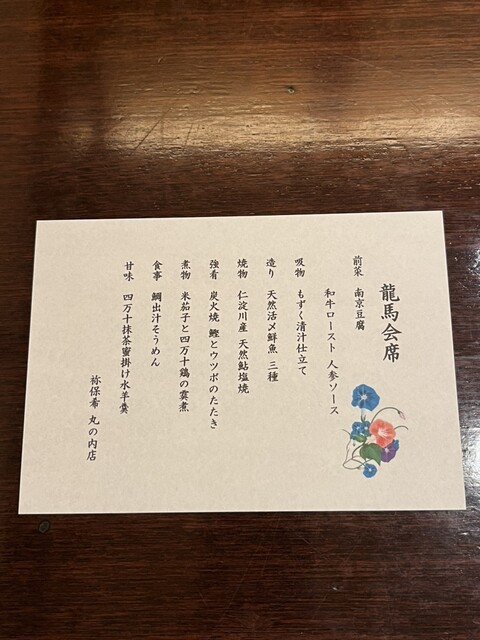 龍馬会席
前菜 南京豆腐
和牛ロースト 人参ソース
吸物 もずく清汁仕立て
造り 天然活〆鮮魚 三種
焼物 仁淀川産 天然鮎塩焼
強肴 炭火焼 鰹とウツボのたたき
煮物 米茄子と四万十鶏の霙煮
食事 鯛出汁そうめん
甘味 四万十抹茶蜜掛け水羊羹
祢保希 丸の内店